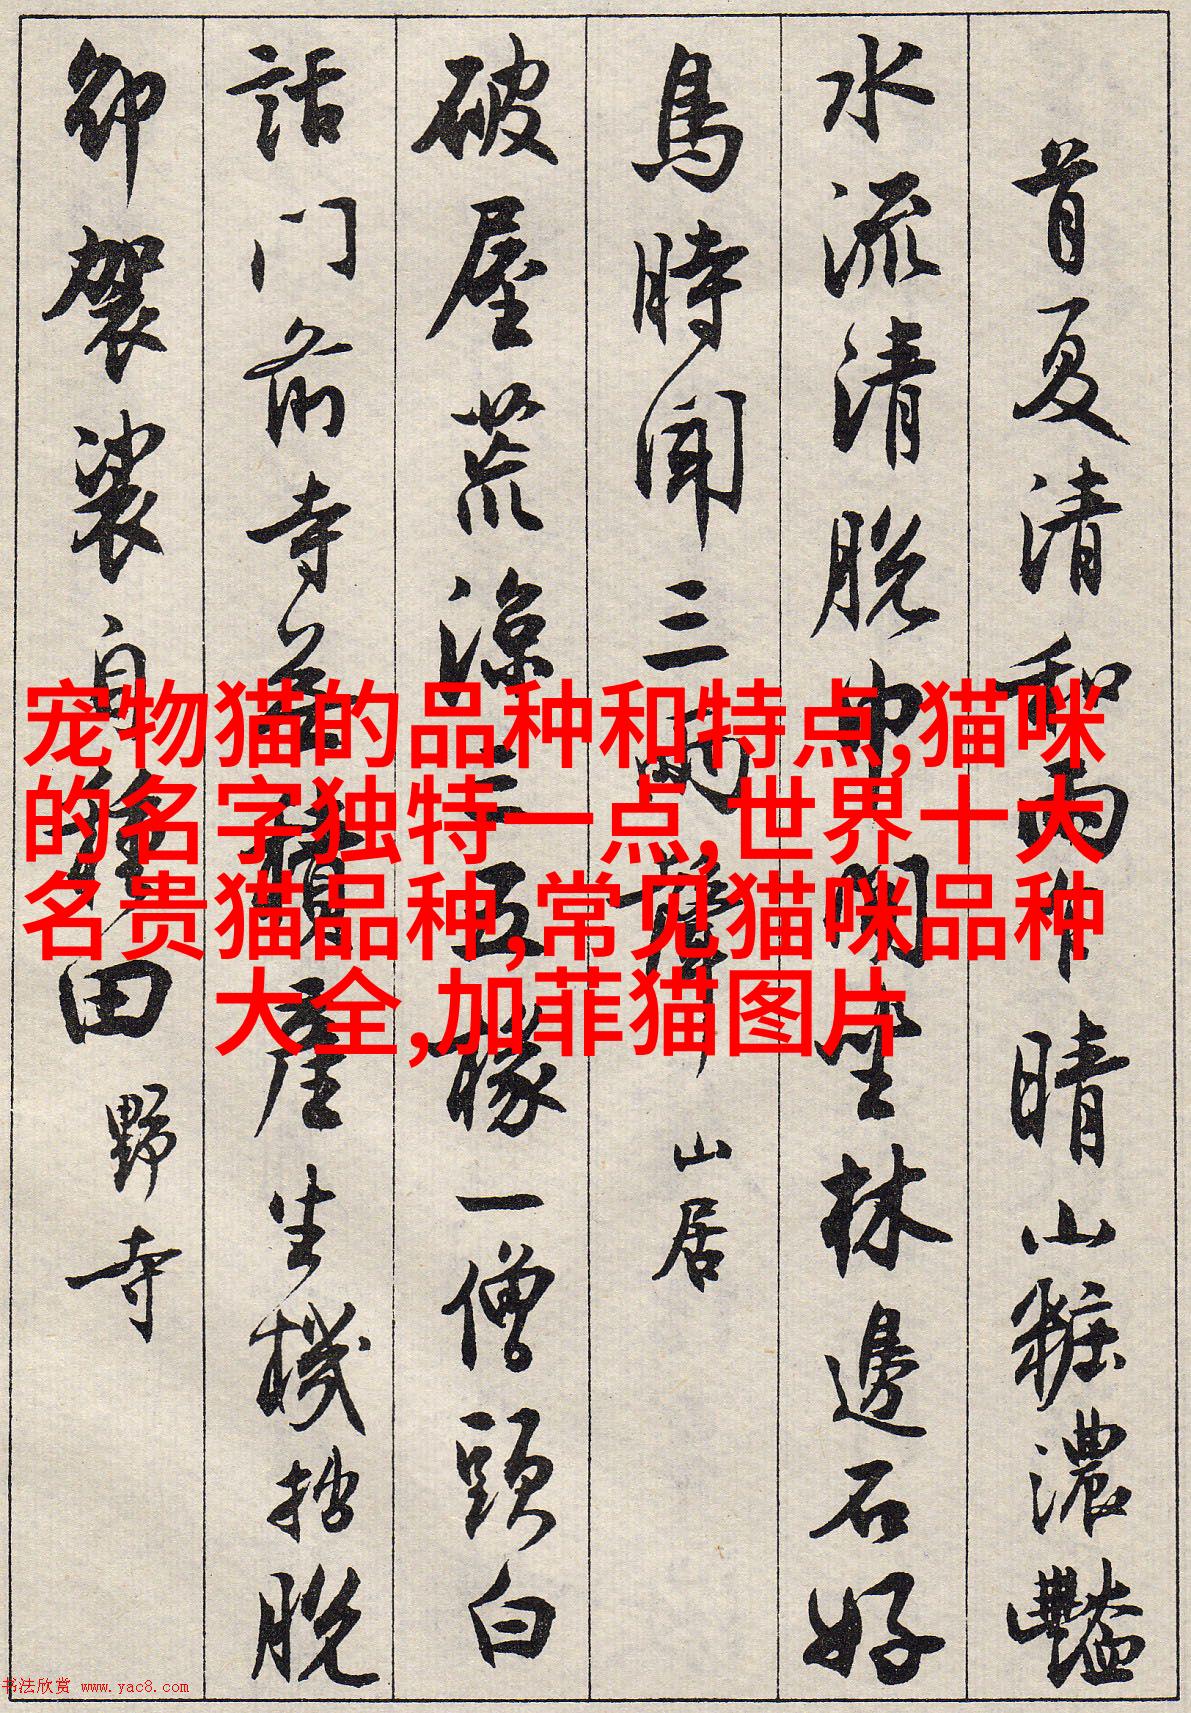 首夏清和雨乍晴山粧濃豔
水流清脫巾閑坐林邊石好
鳥時聞三兩聲 山居
破屋荒涼三五椽一僧頭白
話門前寺無積產生機拙脫
卻袈裟自種田 野寺
宠物猫的品种和特点,猫咪
的名字独特一点,世界十大
名贵猫品种,常见猫咪品种
大全,加菲猫图片
书法欣赏 www.yac8.com